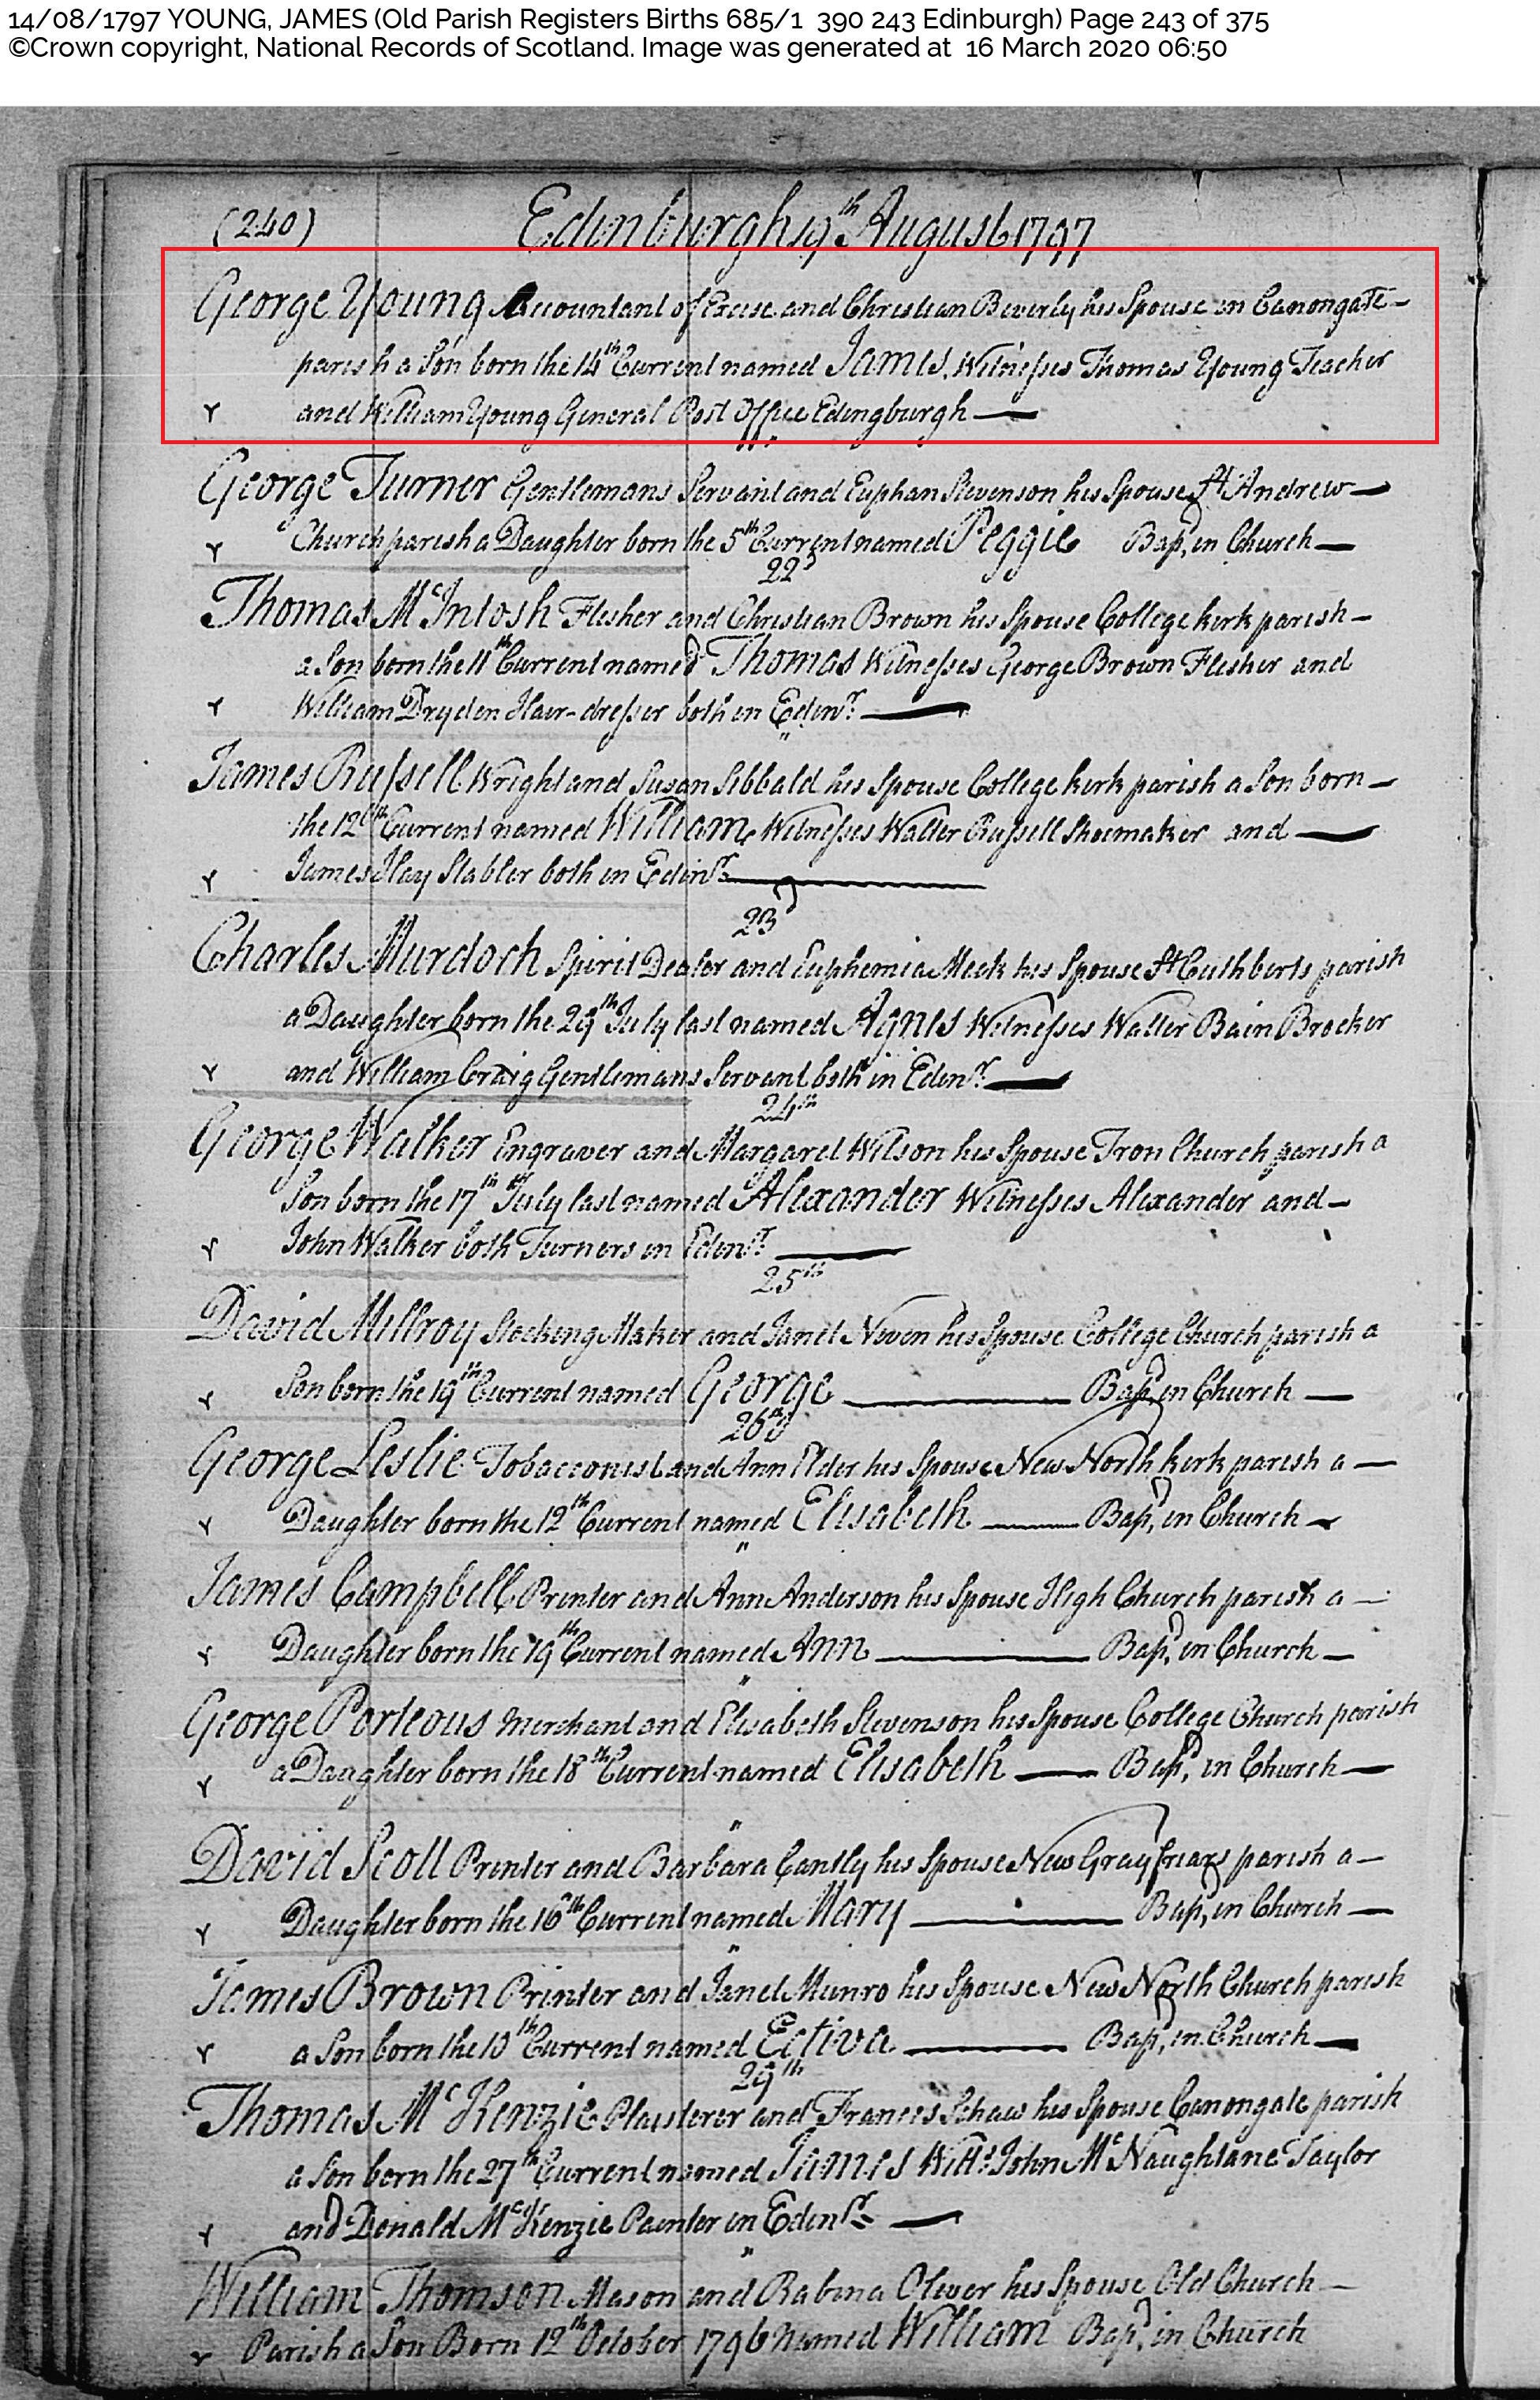 14/08/1797 YOUNG, JAMES (Old Parish Registers Births 685/1 390 243 Edinburgh) Page 243 of 375
©Crown copyright, National Records of Scotland. Image was generated at 16 March 2020 06:50
(240) Edinburgh 19th August 1797
George Young Accountant of Excise and Christian Beverly his Spouse in Canongate
parish a Son born the 14th Current named James, Witnesses Thomas Young Teacher
and William Young General Post Office Edingburgh
"
George Turner Gentlemans Servant and Euphan Stevenson his Spouse St Andrew
Church parish a Daughter born the 5th Current named Peggie Bapd in Church
22d
Thomas McIntosh Flesher and Christian Brown his Spouse College kirk parish
a Son born the 11th Current named Thomas Witnesses George Brown Flesher and
William Dryden Hair-dresser both in Edinr
"
James Russell Wright and Susan Sibbald his Spouse College kirk parish a Son born
the 12th Current named William, Witnesses Walter Russell Shoemaker and
James Hay Stabler both in Edinr
23d
Charles Murdoch Spirit Dealer and Euphemia Meek his Spouse St Cuthberts parish
a Daughter born the 29th July last named Agnes Witnesses Walter Bain Brocker
and William Craig Gentlemans Servant both in Edinr
24th
George Walker Engraver and Margaret Wilson his Spouse Tron Church parish a
Son born the 17th July last named Alexander Witnesses Alexander and
John Walker both Turners in Edinr
25th
David Millroy Stocking Maker and Janet Niven his Spouse College Church parish a
Son born the 19th Current named George Bapd in Church
26th
George Leslie Tobacconist and Ann Elder his Spouse New North kirk parish a
Daughter born the 12th Current named Elisabeth Bapd in Church
"
James Campbell Printer and Ann Anderson his Spouse High Church parish a
Daughter born the 19th Current named Ann Bapd in Church
"
George Porteous Merchant and Elisabeth Stevenson his Spouse College Church parish
a Daughter born the 18th Current named Elisabeth Bapd in Church
"
David Scott Printer and Barbara Cantly his Spouse New Gray friars parish a
Daughter born the 16th Current named Mary Bapd in Church
"
James Brown Printer and Janet Munro his Spouse New North Church parish
a Son born the 10th Current named Bapd in Church
29th
Thomas McKenzie Plaisterer and Frances Schaw his Spouse Canongate parish
a Son born the 27th Current named James Witts John McNaughtane Taylor
and Donald McKenzie Painter in Edinr
"
William Thomson Mason and Rabina Oliver his Spouse Old Church
Parish a Son Born 12th October 1796 Named William Bapd in Church